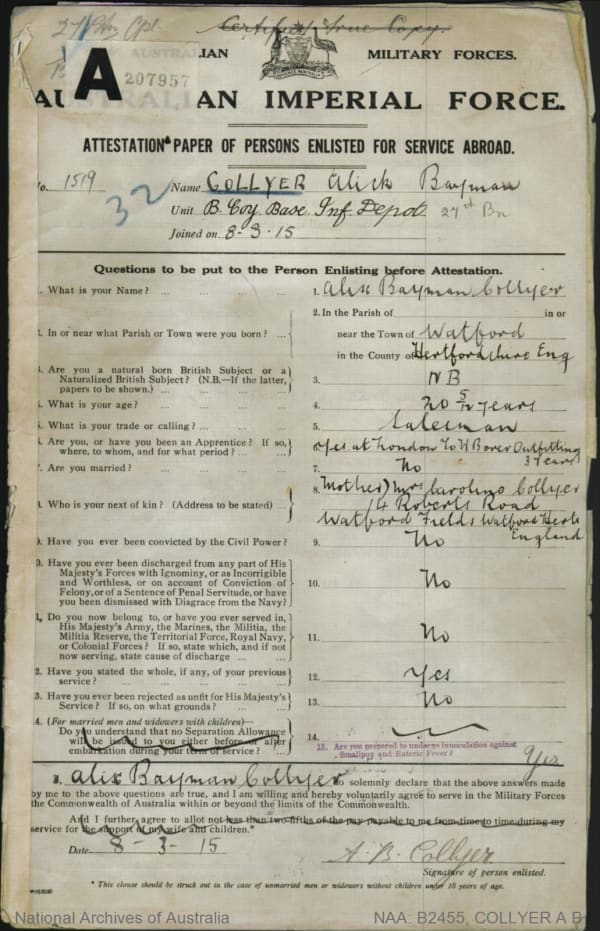 27 Bn Cpl.
Certified True Copy.
AUSTRALIAN MILITARY FORCES.
A
207957
AUSTRALIAN IMPERIAL FORCE.
ATTESTATION PAPER OF PERSONS ENLISTED FOR SERVICE ABROAD.
No. 1519 Name COLLYER Alick Bayman
32
Unit B. Coy. Base. Inf. Depot. 27th Bn
Joined on 8-3-15
Questions to be put to the Person Enlisting before Attestation.
1. What is your Name? ... 1. Alix Bayman Collyer
2. In the Parish of in or
2. In or near what Parish or Town were you born? ... near the Town of Watford
in the County of Hertfordshire Eng
3. Are you a natural born British Subject or a
Naturalized British Subject? (N.B.—If the latter,
papers to be shown.) ... 3. NB
4. What is your age? ... 4. 20 5/12 years
5. What is your trade or calling? ... 5. Salesman
6. Are you, or have you been an Apprentice? If so,
where, to whom, and for what period? ... yes at London to W Borer Outfitting
3 years
7. Are you married? ... 7. No
8. Who is your next of kin? (Address to be stated) ... 8. (Mother) Mrs Caroline Collyer
14 Roberts Road
Watford Fields Watford Herts
England
9. Have you ever been convicted by the Civil Power? 9. No
10. Have you ever been discharged from any part of His
Majesty's Forces with Ignominy, or as Incorrigible
and Worthless, or on account of Conviction of
Felony, or of a Sentence of Penal Servitude, or have
you been dismissed with Disgrace from the Navy? 10. No
11. Do you now belong to, or have you ever served in,
His Majesty's Army, the Marines, the Militia, the
Militia Reserve, the Territorial Force, Royal Navy,
or Colonial Forces? If so, state which, and if not
now serving, state cause of discharge ... 11. No
12. Have you stated the whole, if any, of your previous
service? ... 12. Yes
13. Have you ever been rejected as unfit for His Majesty's
Service? If so, on what grounds? ... 13. No
4. (For married men and widowers with children)—
Do you understand that no Separation Allowance
will be issued to you either before or after
embarkation during your term of service? ... 14.
15. Are you prepared to undergo inoculation against
Smallpox and Enteric Fever? Yes
I, Alix Bayman Collyer solemnly declare that the above answers made
by me to the above questions are true, and I am willing and hereby voluntarily agree to serve in the Military Forces
of the Commonwealth of Australia within or beyond the limits of the Commonwealth.
And I further agree to allot not less than two-fifths of the pay payable to me from time to time during my
service for the support of my wife and children.*
Date 8-3-15
A. B. Collyer
Signature of person enlisted.
* This clause should be struck out in the case of unmarried men or widowers without children under 18 years of age.
National Archives of Australia NAA: B2455, COLLYER A B